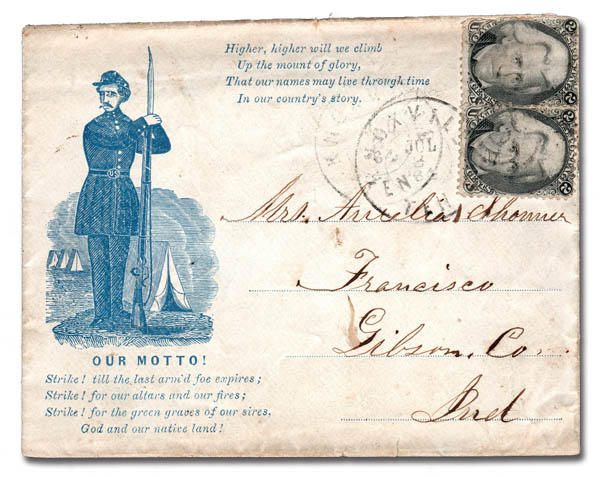 Higher, higher will we climb
Up the mount of glory,
That our names may live through time
In our country's story.
KNOXVILLE
JUL
TEN
Mrs. Aurelia Thomas
Francisco
Gibson, Co.
Ind
US
OUR MOTTO!
Strike! till the last arm'd foe expires;
Strike! for our altars and our fires;
Strike! for the green graves of our sires,
God and our native land!